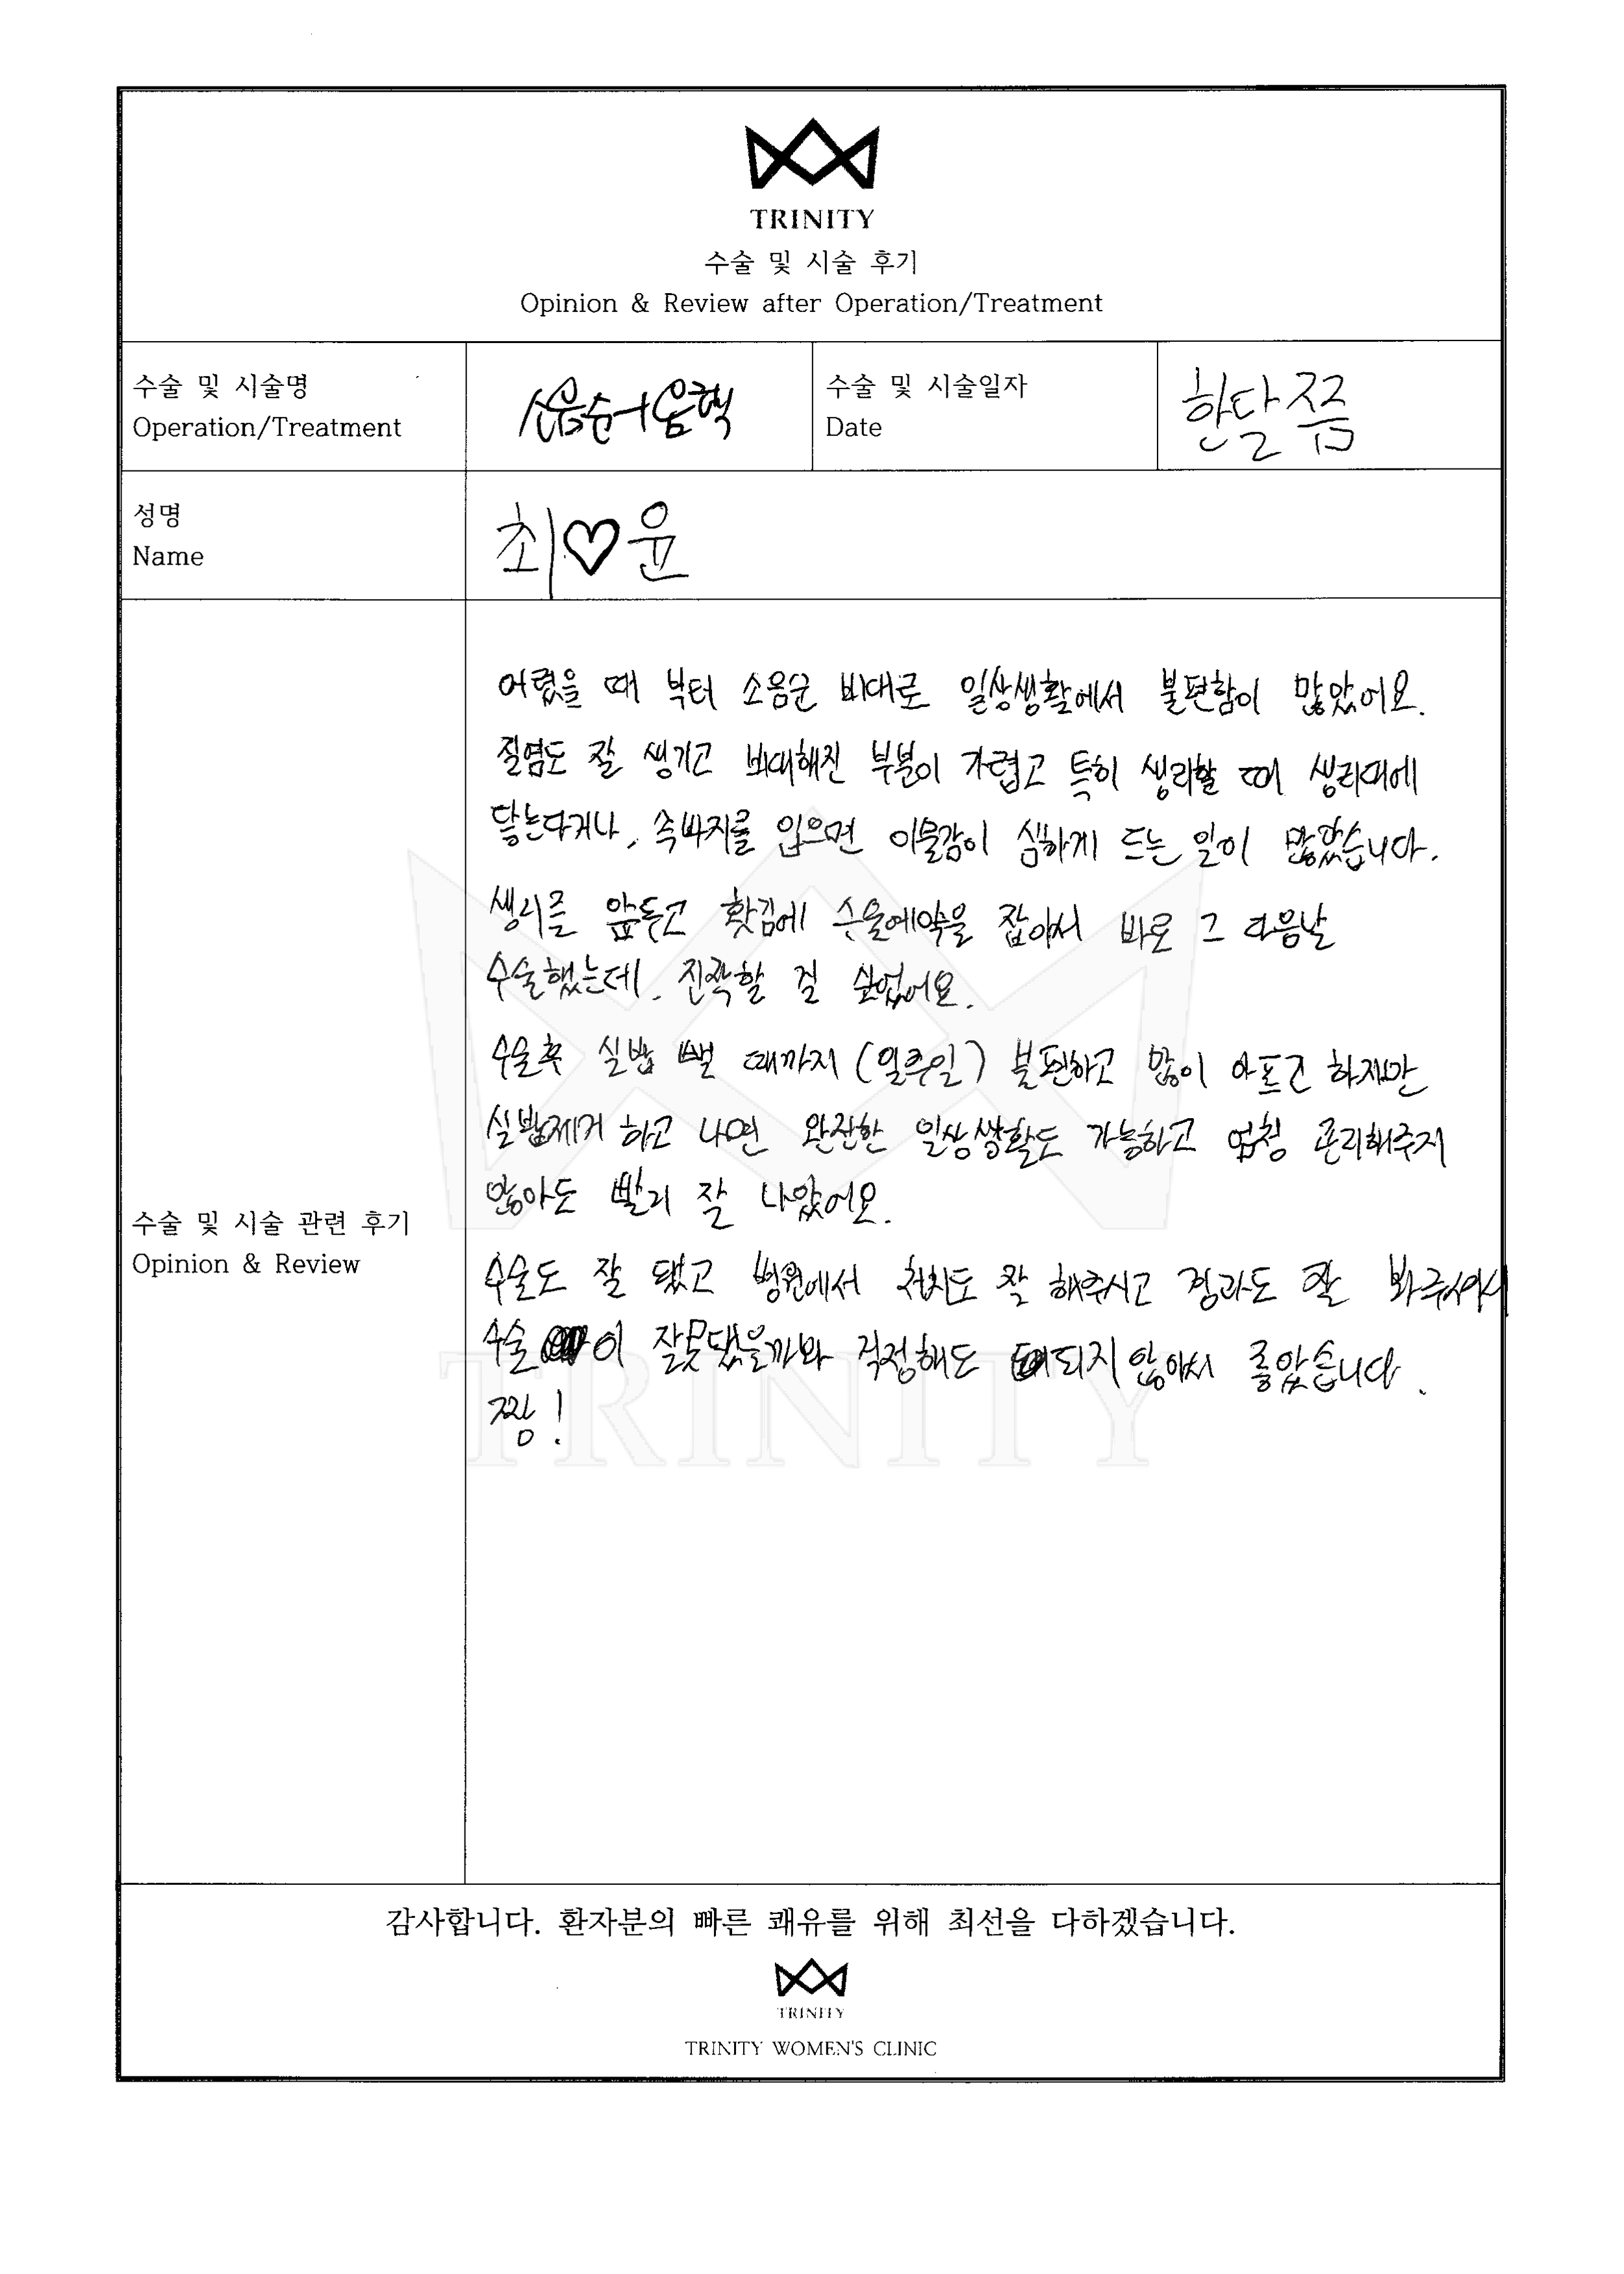 TRINITY
수술 및 시술 후기
Opinion & Review after Operation/Treatment
수술 및 시술명
Operation/Treatment
소음순+음핵
수술 및 시술일자
Date
한달쯤
성명
Name
최♡윤
어렸을 때 부터 소음순 비대로 일상생활에서 불편함이 많았어요.
질염도 잘 생기고 비대해진 부분이 가렵고 특히 생리할 때 생리대에
닿는다거나, 속바지를 입으면 이물감이 심하게 드는 일이 많았습니다.
생리를 앞두고 홧김에 수술예약을 잡아서 바로 그 다음날
수술했는데, 진작할 걸 싶었어요.
수술후 실밥 뺄 때까지 (일주일) 불편하고 많이 아프긴 하지만
실밥제거 하고 나면 완전한 일상생활도 가능하고 엄청 관리해주지
않아도 빨리 잘 나았어요.
수술도 잘 됐고 병원에서 처치도 잘 해주시고 경과도 잘 봐주셔서
수술이 잘못됐을까봐 걱정해도 되지 않아서 좋았습니다.
짱!
수술 및 시술 관련 후기
Opinion & Review
TRINITY
감사합니다. 환자분의 빠른 쾌유를 위해 최선을 다하겠습니다.
TRINITY
TRINITY WOMEN'S CLINIC